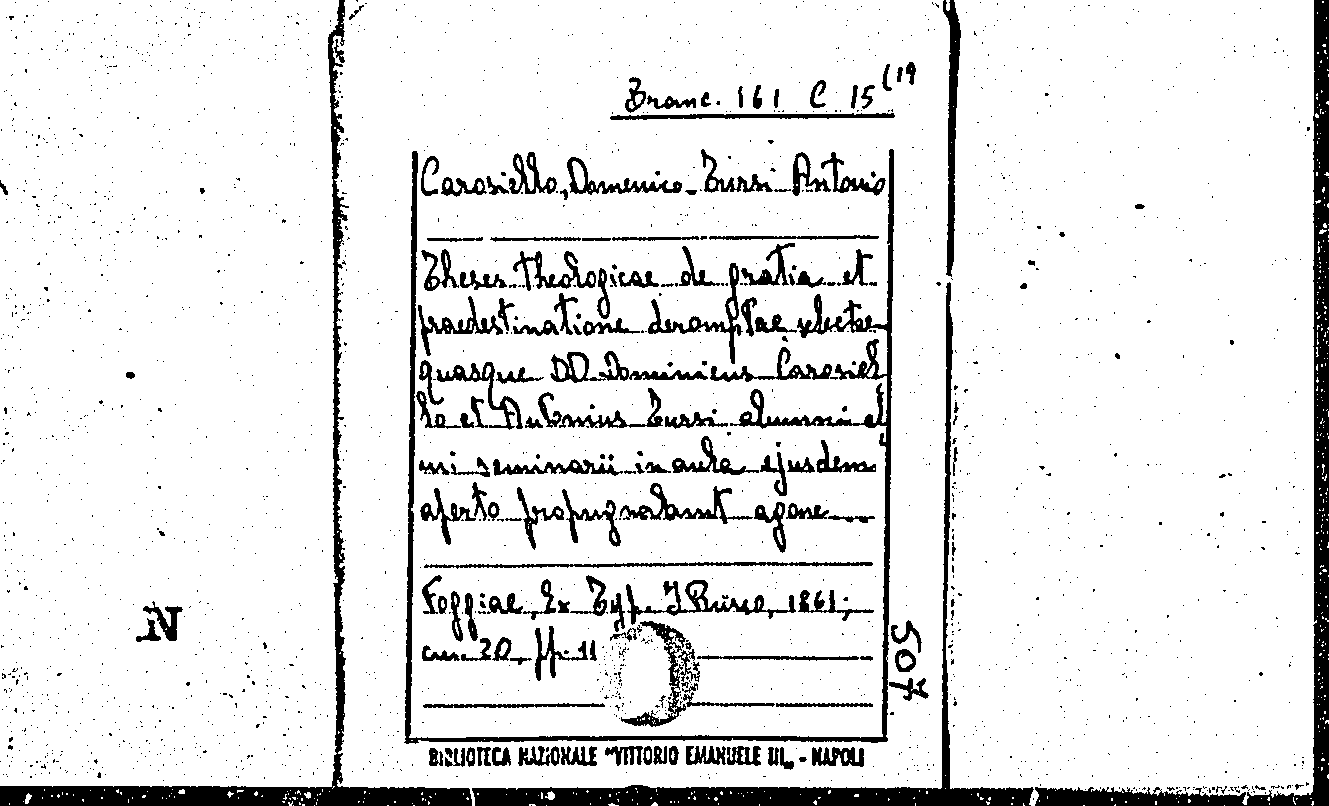 Branc. 161 C 15 (19
Carosiello, Domenico - Tursi Antonio
Theses theologicae de gratia et
praedestinatione deromptae selectae
quasque DD. Dominicus Carosiel
lo et Antonius Tursi alumni al
mi seminarii in aula ejusdem
aperto propugnabunt agone
Foggiae, Ex Typ. J Russo, 1861;
cm. 20, pp. 11
507
N
BIBLIOTECA NAZIONALE "VITTORIO EMANUELE III„ - NAPOLI